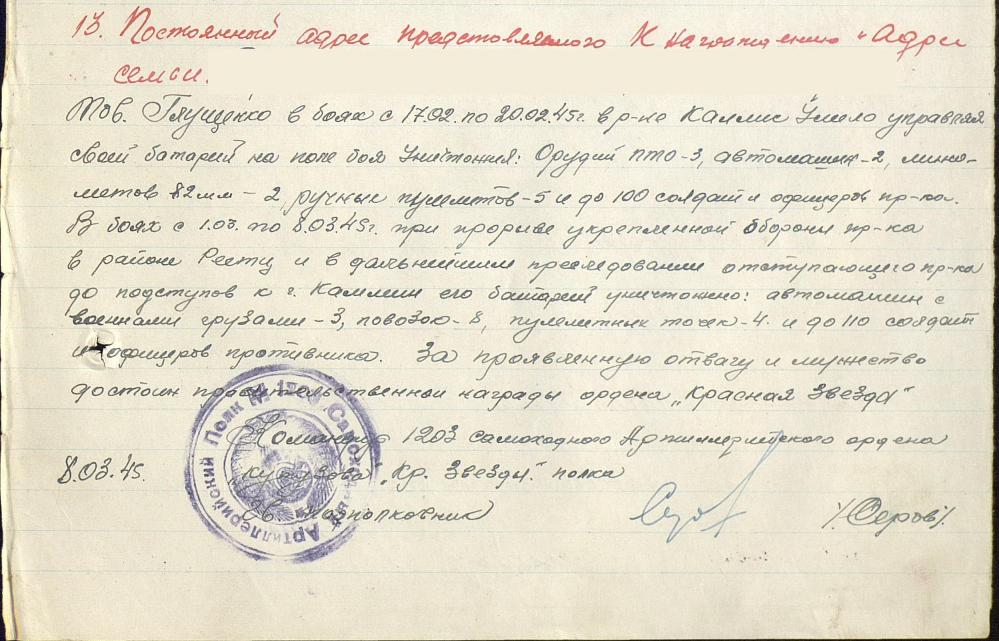 13. Постоянный адрес представляемого к награждению и адрес
семьи.
Тов. Глущенко в боях с 17.02. по 20.02.45г. в р-не Каллис Умело управляя
своей батарей на поле боя Уничтожил: Орудий ПТО-3, автомашин-2, мино-
метов 82мм – 2, ручных пулеметов-5 и до 100 солдат и офицеров пр-ка.
В боях с 1.03. по 8.03.45г. при прорыве укрепленной обороны пр-ка
в районе Реетц и в дальнейшим преследовании отступающего пр-ка
до подступов к г. Каммин его батарей уничтожено: автомашин с
военными грузами-3, повозок-8, пулеметных точек-4. и до 110 солдат
и офицеров противника. За проявленную отвагу и мужество
достоин правительственной награды ордена „Красная Звезда"
Командир 1203 самоходного Артиллерийского ордена
8.03.45. Кутузова „Кр. Звезды". полка
подполковник /Серов/.
Артиллерийский Полк